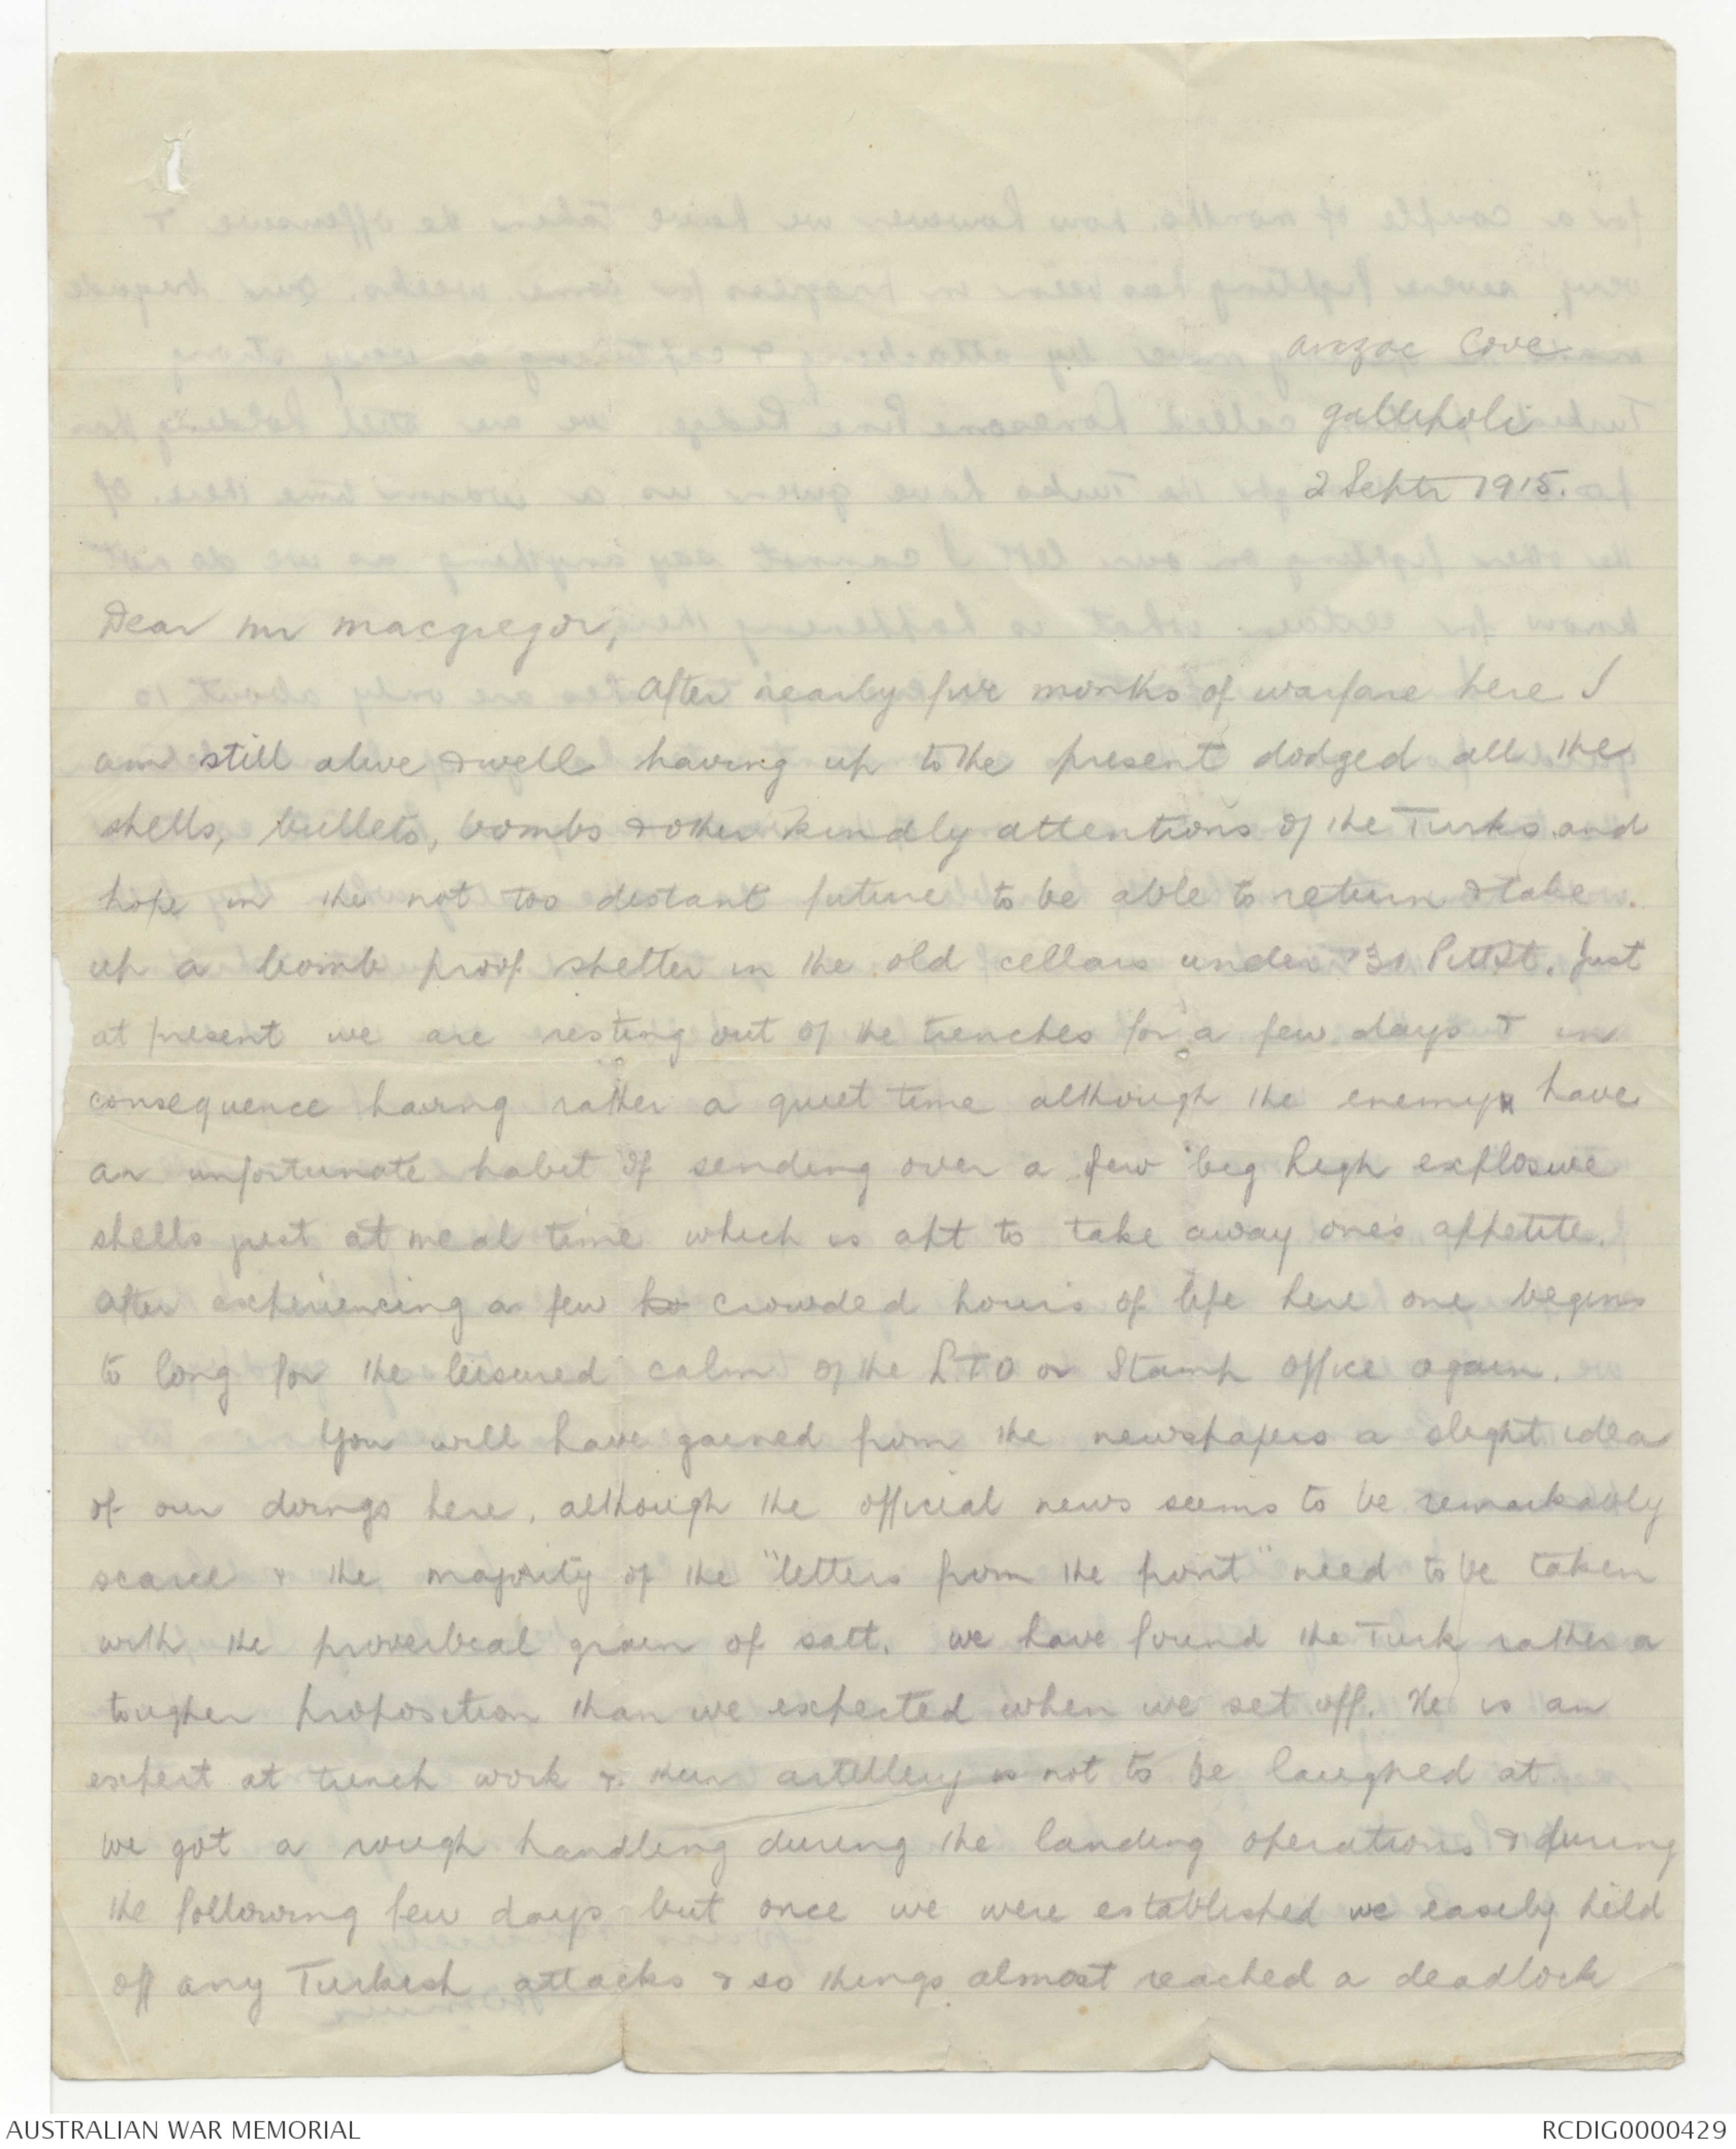 Anzac Cove.
Gallipoli
2 Septr 1915.
Dear Mr Macgregor,
After nearly five months of warfare here I
am still alive & well having up to the present dodged all the
shells, bullets, bombs & other kindly attentions of the Turks and
hope in the not too distant future to be able to return & take
up a bomb proof shelter in the old cellars under 131 Pitt St. Just
at present we are resting out of the trenches for a few days & in
consequence having rather a quiet time although the enemy have
an unfortunate habit of sending over a few big high explosive
shells just at meal time which is apt to take away one's appetite.
After experiencing a few ho crowded hours of life here one begins
to long for the leisured calm of the LTO or Stamp Office again.
You will have gained from the newspapers a slight idea
of our doings here, although the official news seems to be remarkably
scarce & the majority of the "letters from the front" need to be taken
with the proverbial grain of salt. We have found the Turk rather a
tougher proposition than we expected when we set off. He is an
expert at trench work & their artillery is not to be laughed at.
We got a rough handling during the landing operations & during
the following few days but once we were established we easily held
off any Turkish attacks & so things almost reached a deadlock
AUSTRALIAN WAR MEMORIAL
RCDIG0000429